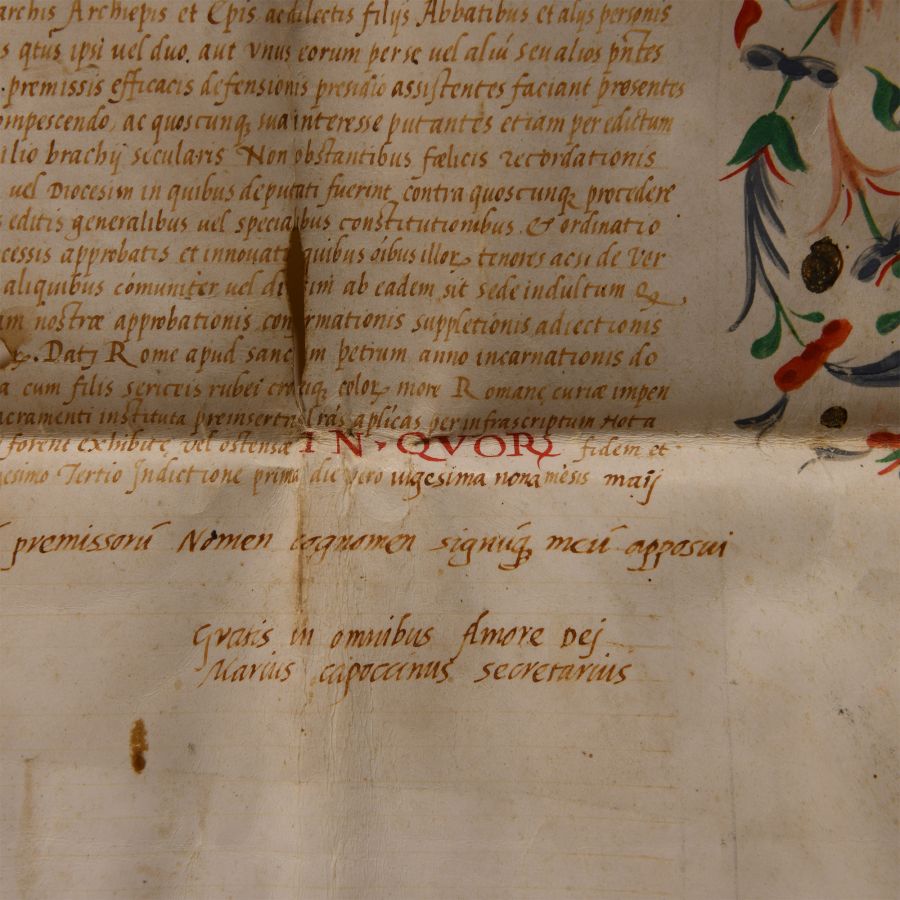 archis Archiepis et Epis ac dilectis filijs Abbatibus et alijs personis
s qtus ipsi vel duo aut vnus eorum per se vel aliū seu alios pñtes
premissis efficacis defensionis presidio assistentes faciant presentes
ompescendo, ac quoscunq sua interesse putantes etiam per edictum
ilio brachij secularis Non obstantibus fælicis recordationis
vel Diocesim in quibus deputati fuerint contra quoscunq procedere
s editis generalibus vel specialibus constitutionibus & ordinatio
cessis approbatis et innovatis quibus oibus illor tenores acsi de ver
aliquibus cōmuniter vel di im ab eadem sit sede indultum Q
am nostræ approbationis confirmationis suppletionis adiectionis
Datj Rome apud sanc m petrum anno incarnationis do
a cum filis sericeis rubei croceiq color more Romanę curiæ impen
acramenti instituta preinserta lrās aplicas per infrascriptum Nota
forent exhibitę vel ostensæ IN QVOR fidem et
gesimo Tertio Indictione prima die vero vigesima nona mēsis maij
premissorū Nomen cognomen signūq meū apposui
Gratis in omnibus Amore Dej
Marius capoccinus secretarius